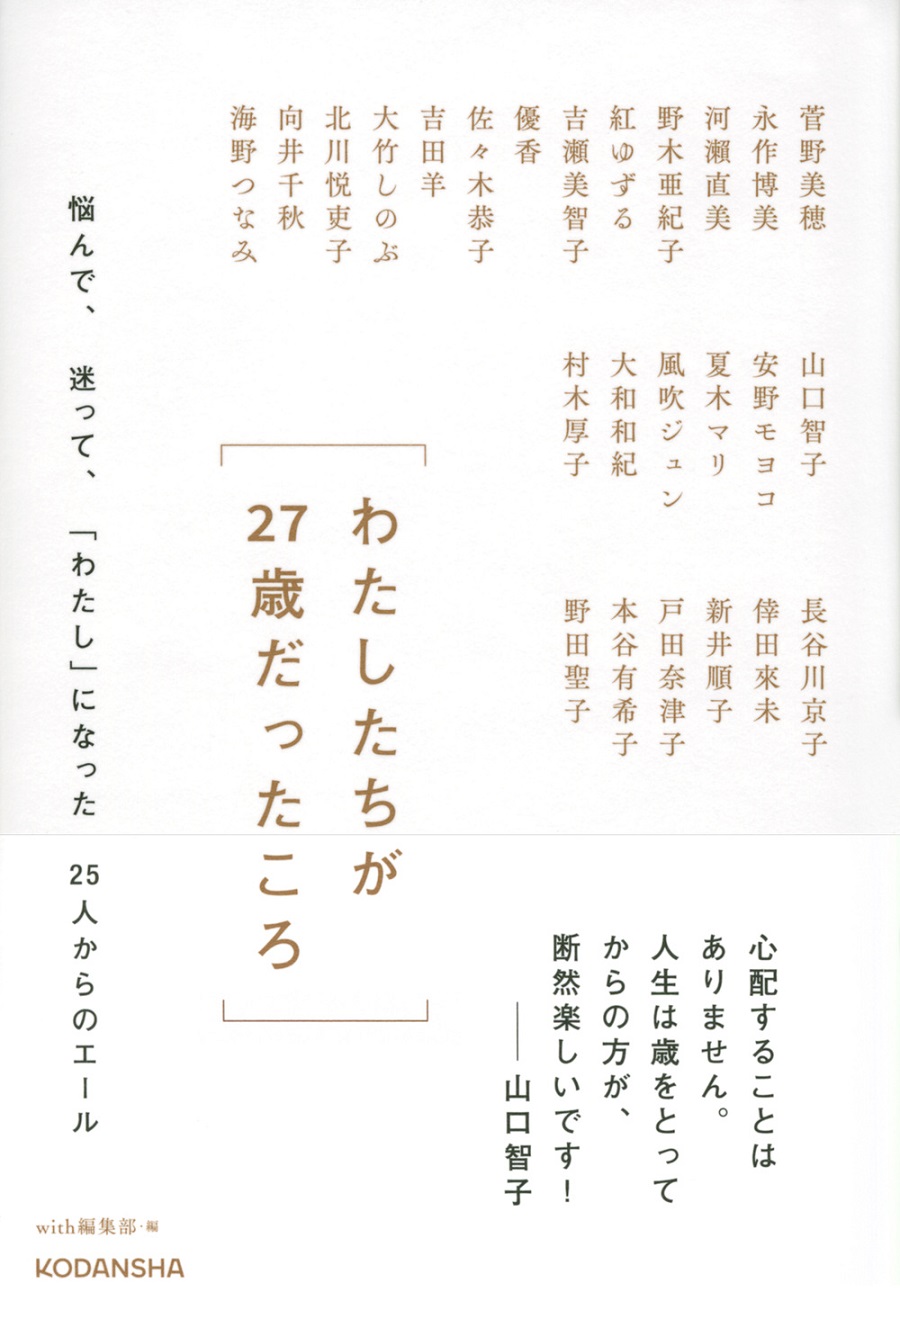 菅野美穂
永作博美
河瀨直美
野木亜紀子
紅ゆずる
吉瀬美智子
優香
佐々木恭子
吉田羊
大竹しのぶ
北川悦吏子
向井千秋
海野つなみ
山口智子
安野モヨコ
夏木マリ
風吹ジュン
大和和紀
村木厚子
長谷川京子
倖田來未
新井順子
戸田奈津子
本谷有希子
野田聖子
わたしたちが
27歳だったころ
悩んで、迷って、「わたし」になった 25人からのエール
心配することは
ありません。
人生は歳をとって
からの方が、
断然楽しいです！
――山口智子
with編集部・編
KODANSHA